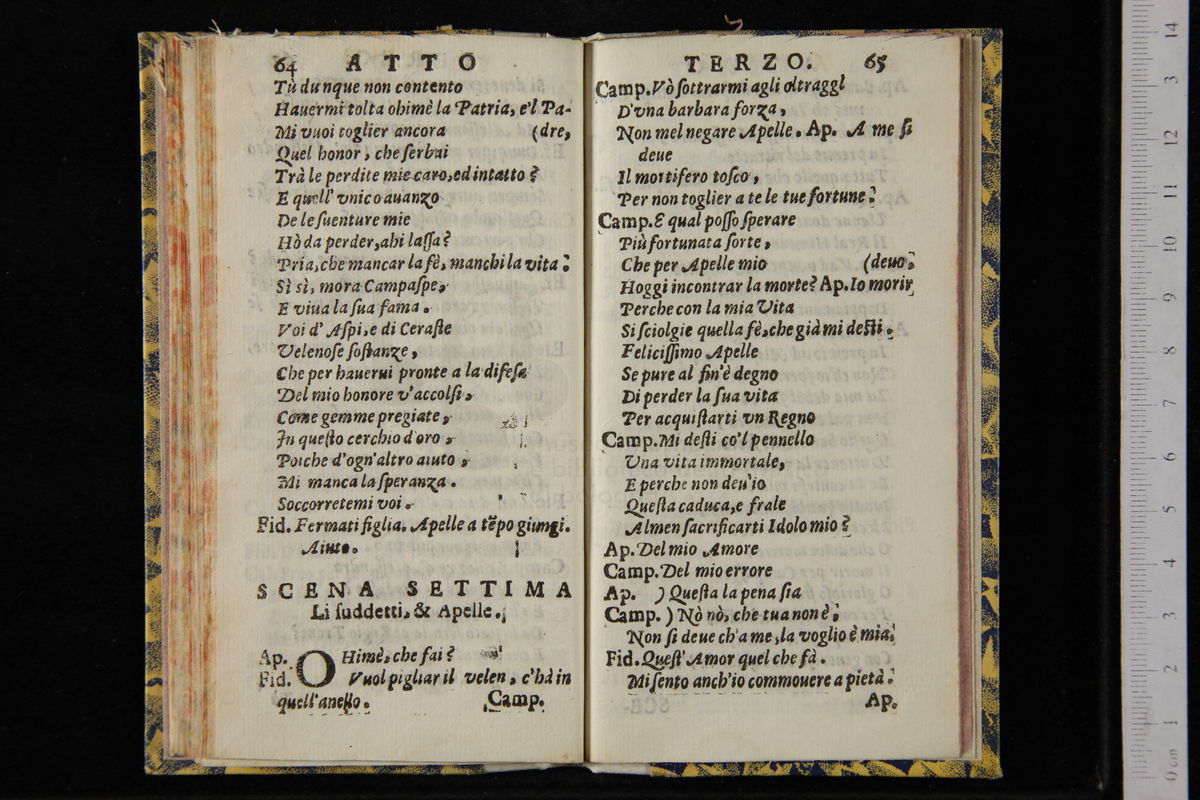 64 ATTO
Tù dunque non contento
Hauermi tolta ohimè la Patria, e'l Pa-
Mi vuoi toglier ancora (dre,
Quel honor, che serbai
Trà le perdite mie caro, ed intatto?
E quell' vnico auanzo
De le suenture mie
Hò da perder, ahi lassa?
Pria, che mancar la fè, manchi la vita:
Sì sì, mora Campaspe,
E viua la sua fama.
Voi d' Aspi, e di Ceraste
Velenose sostanze,
Che per hauerui pronte a la difesa
Del mio honore v'accolsi,
Come gemme pregiate,
In questo cerchio d'oro,
Poiche d'ogn'altro aiuto,
Mi manca la speranza.
Soccorretemi voi.
Fid. Fermati figlia. Apelle a tẽpo giungi.
Aiuto.
SCENA SETTIMA
Li suddetti, & Apelle.
Ap. OHimè, che fai?
Fid. Vuol pigliar il velen, c'hà in
quell'anello. Camp.
TERZO. 65
Camp. Vò sottrarmi agli oltraggl
D'vna barbara forza,
Non mel negare Apelle. Ap. A me si
deue
Il mortifero tosco,
Per non toglier a te le tue fortune:
Camp. E qual posso sperare
Più fortunata sorte,
Che per Apelle mio (deuo:
Hoggi incontrar la morte? Ap. Io morir
Perche con la mia Vita
Si sciolgie quella fè, che già mi desti.
Felicissimo Apelle
Se pure al fin'è degno
Di perder la sua vita
Per acquistarti vn Regno
Camp. Mi desti co'l pennello
Una vita immortale,
E perche non deu'io
Questa caduca, e frale
Almen sacrificarti Idolo mio?
Ap. Del mio Amore
Camp. Del mio errore
Ap. ) Questa la pena sia
Camp. ) Nò nò, che tua non è;
Non si deue ch'a me, la voglio è mia.
Fid. Quest' Amor quel che fà.
Mi sento anch'io commouere a pietà.
Ap.